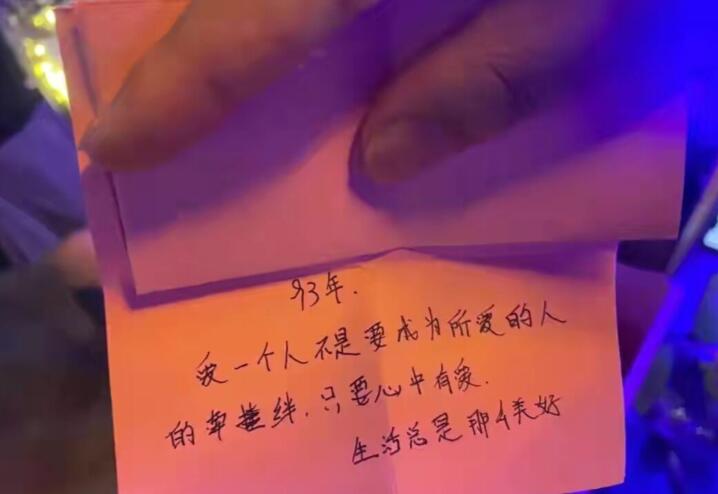 93年.
爱一个人不是要成为所爱的人
的牵绊.只要心中有爱.
生活总是那么美好